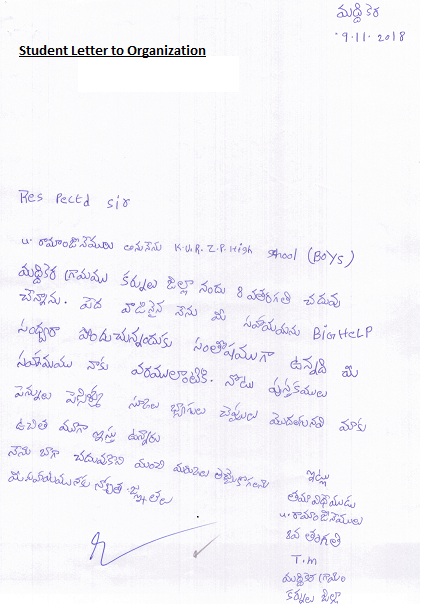 మద్దికెర
9.11.2018
Student Letter to Organization
Res Pectd sir
u. రామాంజినేములు అనునేను K.U.R. Z.P. High school (BoYs)
మద్దికెర గ్రామము కర్నులు జిల్లా నందు 8 వతరగతి చదువు
చున్నాను. పేద వాడినైన నేను మీ సహాయమను BigHeLP
సంస్థద్వారా పొందుచున్నందుకు సంతోషముగా ఉన్నది మీ
సహాయము నాకు వరములాంటిది. నోటు పుస్తకములు
పెన్నులు స్కూలు బ్యాగులు చెప్పులు మొదలగునవి మాకు
ఉచిత ముగా ఇస్తు ఉన్నారు
నేను బాగా చదువుకొని మంచి మార్కులు
మీ సహాయములకు
ఇట్లు
తమ విధేయుడు
u. రామాంజినేములు
8వ తరగతి
T.m
మద్దికెర గ్రామం
కర్నులు జిల్లా